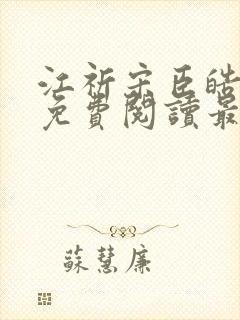 江祈宋臣皓
免費閱讀最
蘇慧廉